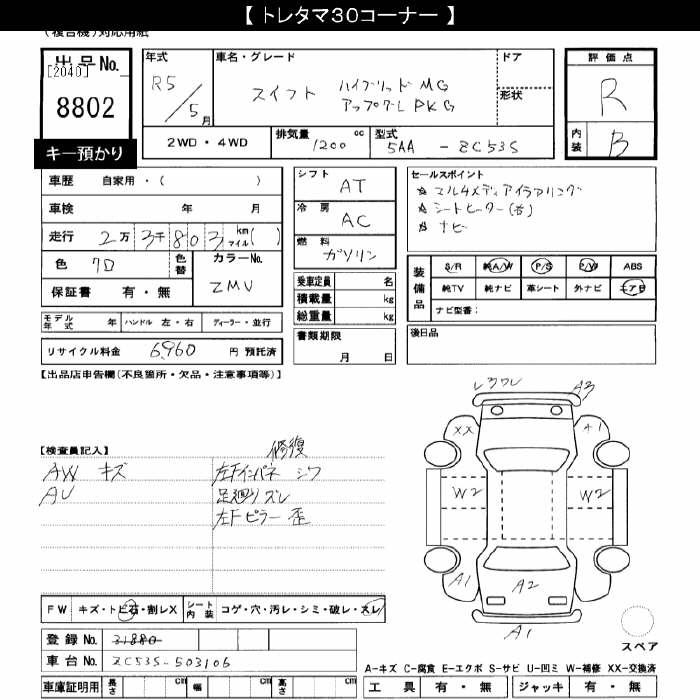 【 トレタマ30コーナー 】
(複合機)対応用紙
出品No.
[2040]
8802
キー預かり
年式
R5/5月
車名・グレード
スイフト ハイブリッドMG
アップグレPKG
ドア
形状
評価点
R
内装
B
2WD・4WD
排気量
1200 cc
型式
5AA - ZC53S
車歴 自家用・( )
車検 年 月
走行 2万3千803 kmマイル( )
色 クロ
色替
カラーNo.
ZMV
保証書 有・無
モデル年式 年 ハンドル 左・右 ディーラー・並行
リサイクル料金 6,960 円 預託済
シフト
AT
冷房
AC
燃料
ガソリン
乗車定員 名
積載量 kg
総重量 kg
書類期限
月 日
セールスポイント
☆ マルチメディアイヤリング
☆ シートヒーター(前)
☆ ナビ
装備品
S/R 純A/W P/S P/W ABS
純TV 純ナビ 革シート 外ナビ エアB
ナビ型番:
後日品
【出品店申告欄(不良箇所・欠品・注意事項等)】
【検査員記入】
修復
AW キズ
AU
左Fインパネ シワ
足廻りズレ
左Fピラー 歪
レフワレ
A3
XX
A1
W2
W2
A1
A2
A1
スペア
FW キズ・トビ石・割レX
シート内装 コゲ・穴・汚レ・シミ・破レ・スレ
登録 No. 31880
車台 No. ZC53S-503106
車庫証明用 長さ cm 幅 cm 高さ cm
A-キズ C-腐食 E-エクボ S-サビ U-凹ミ W-補修 XX-交換済
工具 有・無 ジャッキ 有・無